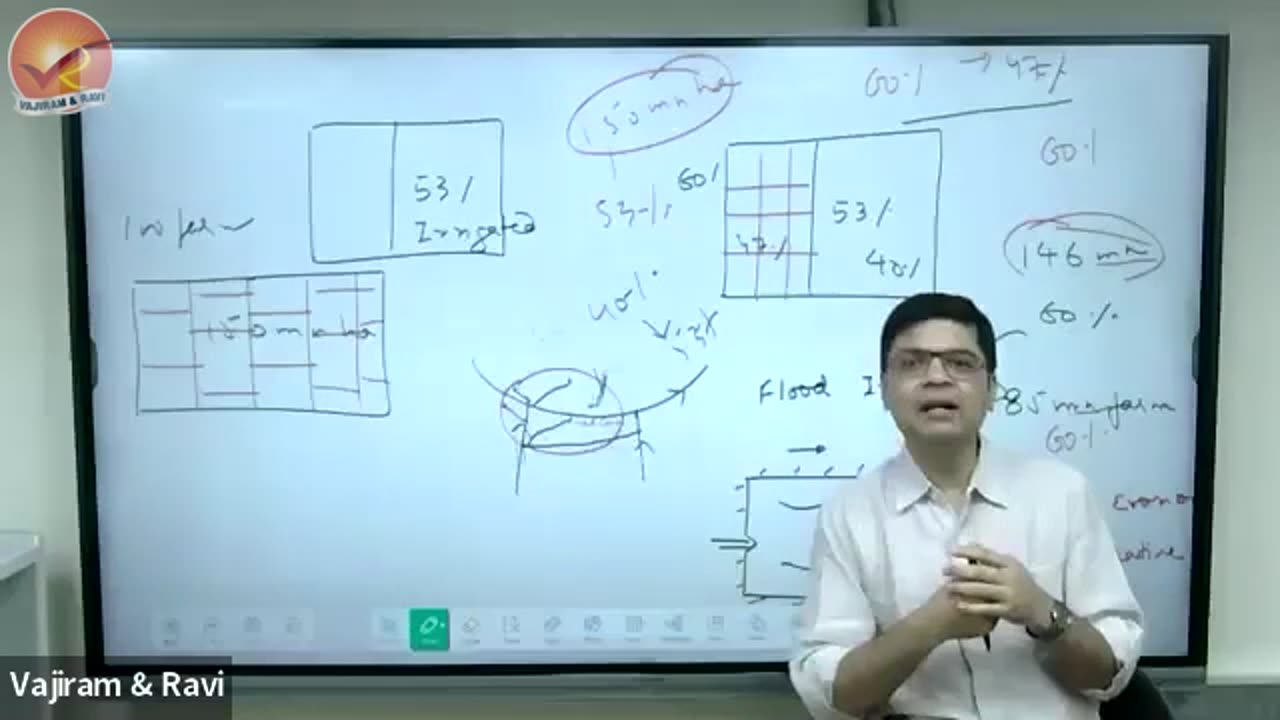 VAJIRAM & RAVI
150 mn ha
60% → 47%
53%
Irrigated
53%
60%
47%
53%
40%
60%
146 mn
60%
150 mn ha
40%
Flood
85 mn farm
60%
Vajiram & Ravi